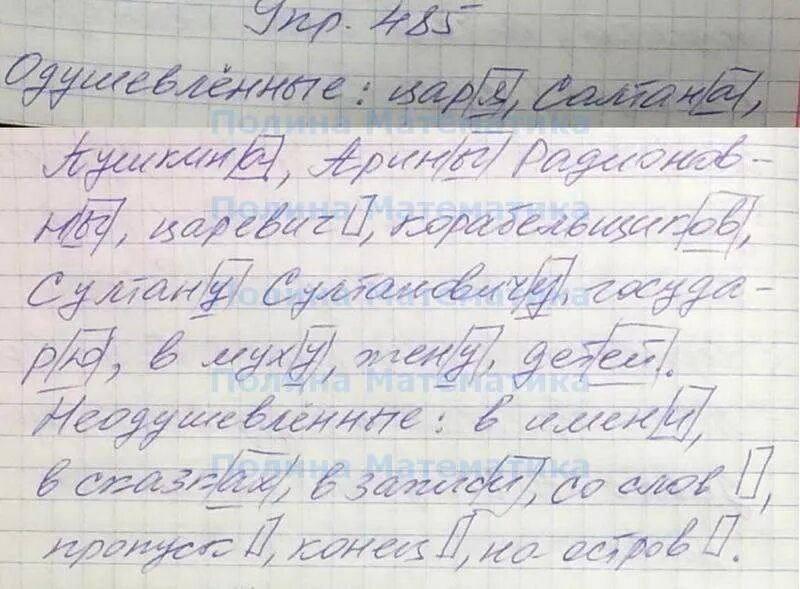 Упр. 485
Одушевлённые: царя, Салтана,
Полина Математика
Пушкина, Арины Радионов-
ны, царевич, корабельщиков,
Полина Математика
Султану Султановичу, госуда-
Полина Математика
рю, в муху, жену, детей.
Полина Математика
Неодушевлённые: в имени,
в сказках, в записи, со слов,
Полина Математика
пропуск, конец, на остров.
Полина Математика